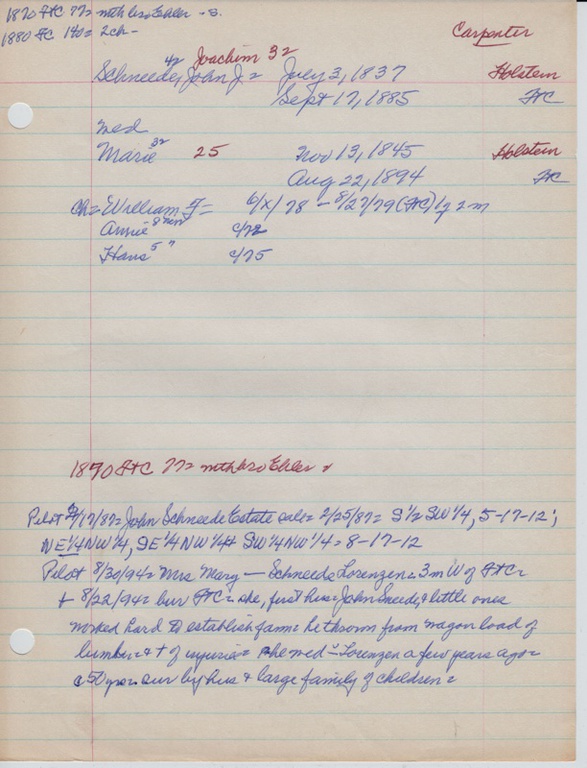 1870 FtC 77= mth bro Ehler - s.
1880 FC 140= 2ch -
Carpenter
42 Joachim 32
Schneede, John J= July 3, 1837 Holstein
Sept 17, 1885 FtC
wed
Marie 32 25 Nov 13, 1845 Holstein
Aug 22, 1894 FC
Ch= William F= 6/X/78 - 8/27/79 (FtC) 1y 2m
Annie 8 c/72
Hans 5 " c/75
1870 FtC 77= mth bro Ehler
Pilot /17/87= John Schneede Estate sale= 2/25/87= S 1/2 SW 1/4, 5-17-12;
NE 1/4 NW 1/4, SE 1/4 NW 1/4 + SW 1/4 NW 1/4 = 8-17-12
Pilot 8/30/94= Mrs Mary - Schneede Lorenzen= 3m W of FtC=
+ 8/22/94= bur FtC= she, first hus= John Sneede, & little ones
worked hard to establish farm= he thrown from wagon load of
lumber= & + of injuries= she wed = Lorenzen a few years ago=
a 50 yrs= sur by hus & large family of children=